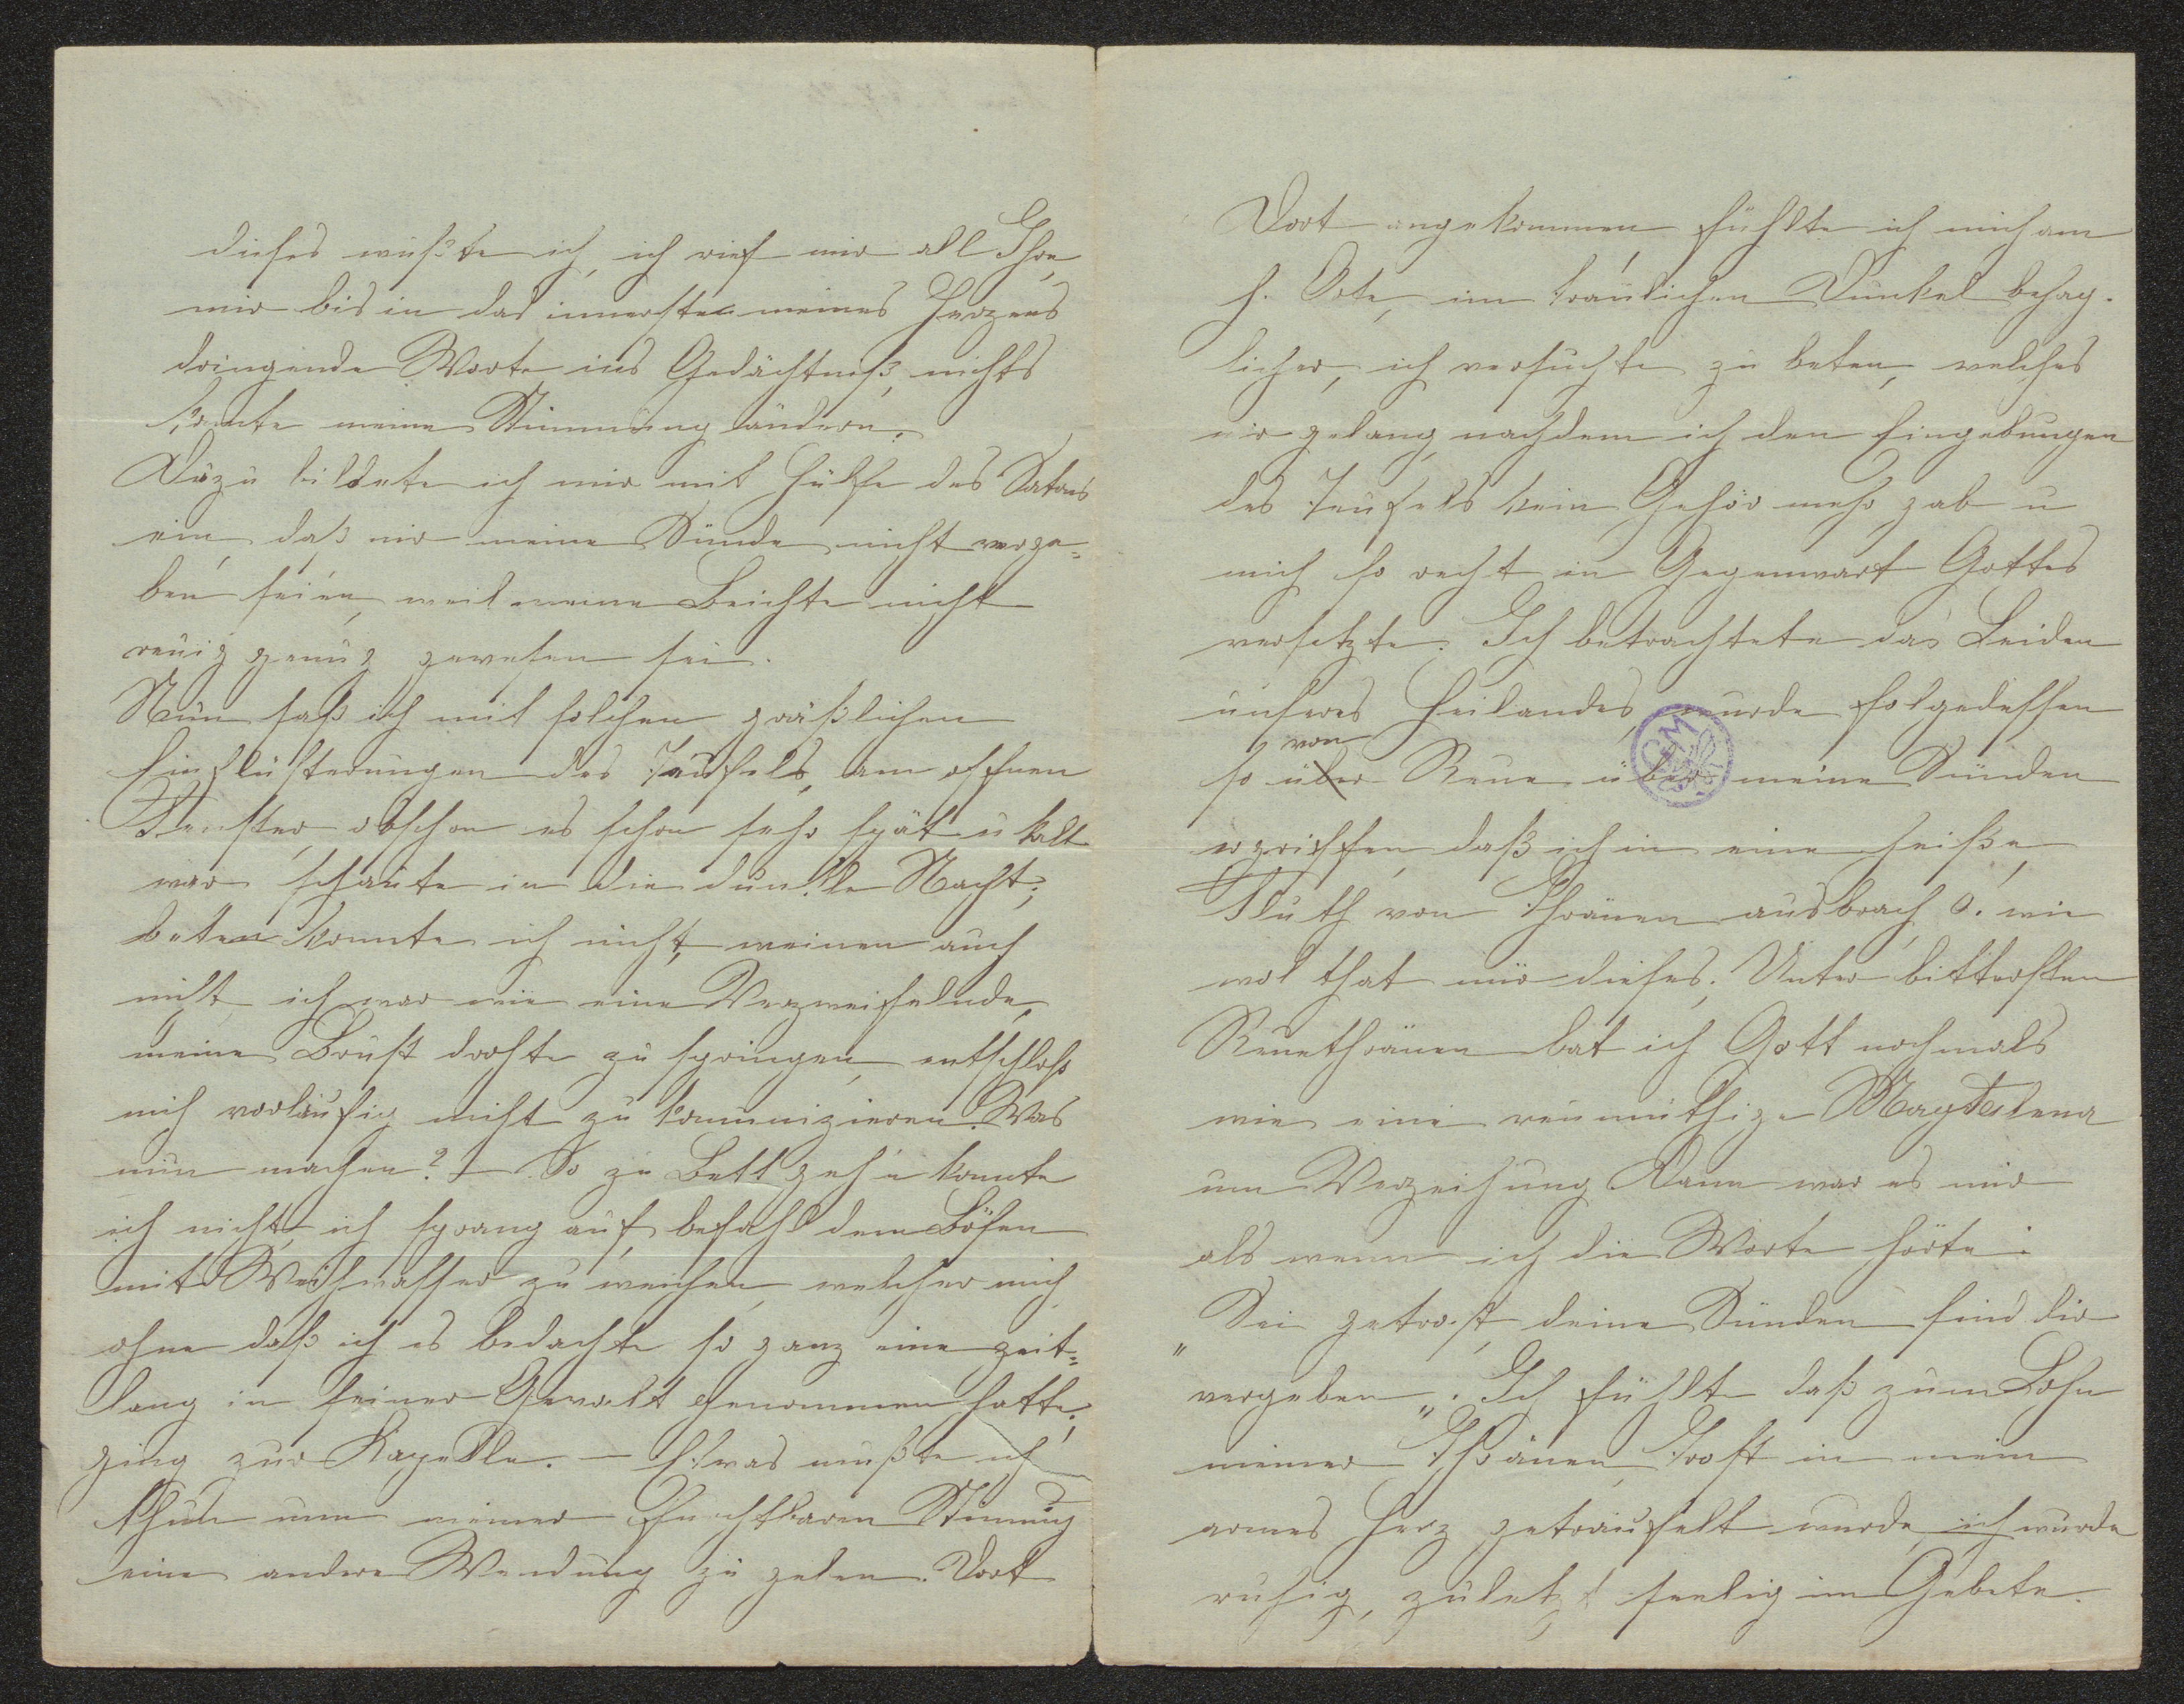 dieses wußte ich, ich rief mir all Ihre,
mir bis in das innerste meines Herzens
dringende Worte ins Gedächtniß, nichts
konnte meine Stimmung ändern.
Dazu bildete ich mir mit Hülfe des Satans
ein, daß mir meine Sünde nicht verge=
ben seien, weil meine Beichte nicht
reuig genug gewesen sei.
Nun saß ich mit solchen gräßlichen
Einflüsterungen des Teufels, am offnen
Fenster, obschon es schon sehr spät u kalt
war schaute in die dunkle Nacht;
beten konnte ich nicht, weinen auch
nicht, ich war wie eine Verzweifelnde,
meine Brust drohte zu springen, entschloß
mich vorläufig nicht zu kommunizieren. Was
nun machen? – So zu Bett geh'n konnte
ich nicht, ich sprang auf, befahl dem Bösen
mit Weihwasser zu weichen, welcher mich
ohne daß ich es bedachte so ganz eine zeit=
lang in seiner Gewalt genommen hatte,
ging zur Kapelle. – Etwas mußte ich
thun um meiner furchtbaren Stimmung
eine andere Wendung zu geben. Dort
Dort angekommen, fühlte ich mich am
h. Orte, im traulichen Dunkel behag-
licher, ich versuchte zu beten, welches
mir gelang, nachdem ich den Eingebungen
des Teufels kein Gehör mehr gab u
mich so recht in Gegenwart Gottes
versetzte. Ich betrachtete das Leiden
unseres Heilandes, wurde folgedessen
von
so über Reue über meine Sünden
ergriffen, daß ich in eine heiße,
Fluth von Thränen ausbrach, O. wie
wol that mir dieses. Unter bittersten
Reuethränen bat ich Gott nochmals
wie eine reumüthige Magdalena
um Verzeihung Dann war es mir
als wenn ich die Worte hörte:
„Sei getrost, deine Sünden sind dir
vergeben„. Ich fühlte daß zum Lohn
meiner Thränen, Trost in mein
armes Herz geträufelt wurde, ich wurde
ruhig, zuletzt seelig im Gebete.